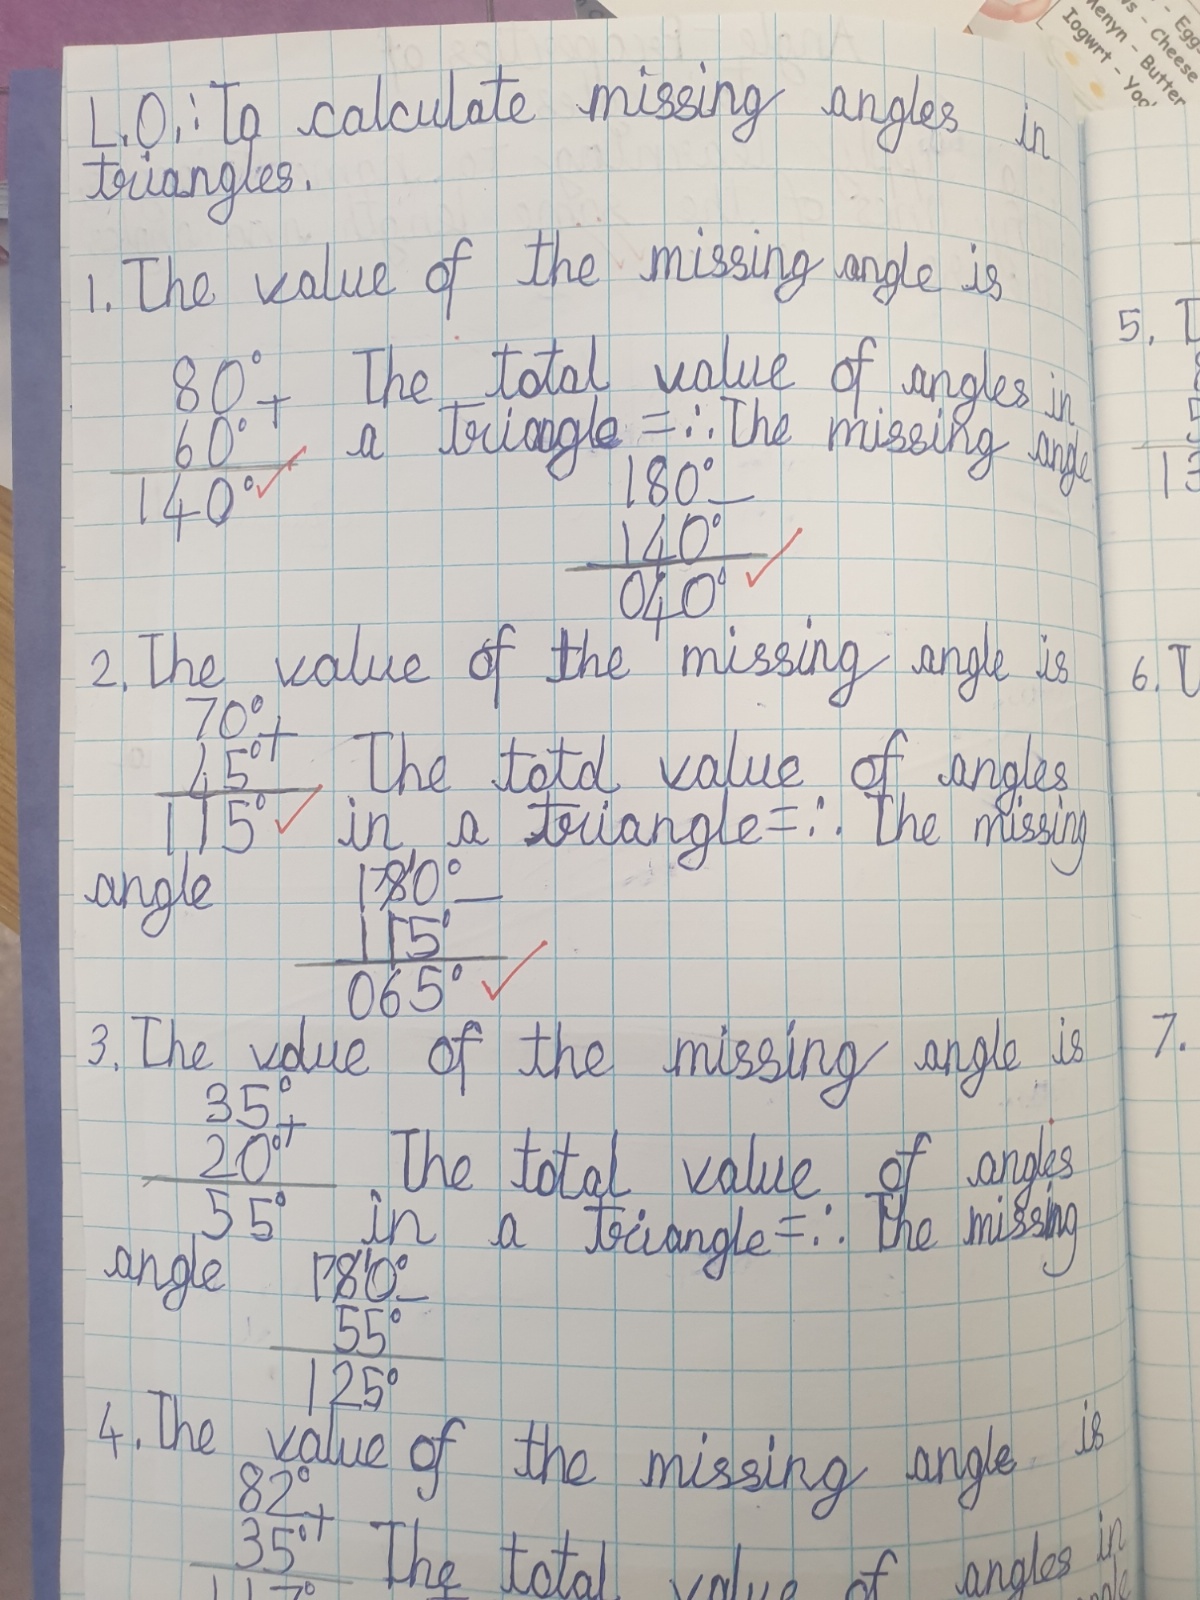 L.O.: To calculate missing angles in
triangles.
1. The value of the missing angle is
80° + The total value of angles in
60° a triangle = ∴ The missing angle
140° 180° -
140°
040°
2. The value of the missing angle is
70° +
45° The total value of angles
115° in a triangle = ∴ The missing
angle 180° -
115°
065°
3. The value of the missing angle is
35° +
20° The total value of angles
55° in a triangle = ∴ The missing
angle 180° -
55°
125°
4. The value of the missing angle is
82° +
35° The total value of angles in
117°
5.
13
6.
7.
Cheese
Menyn - Butter
Iogwrt - Yog